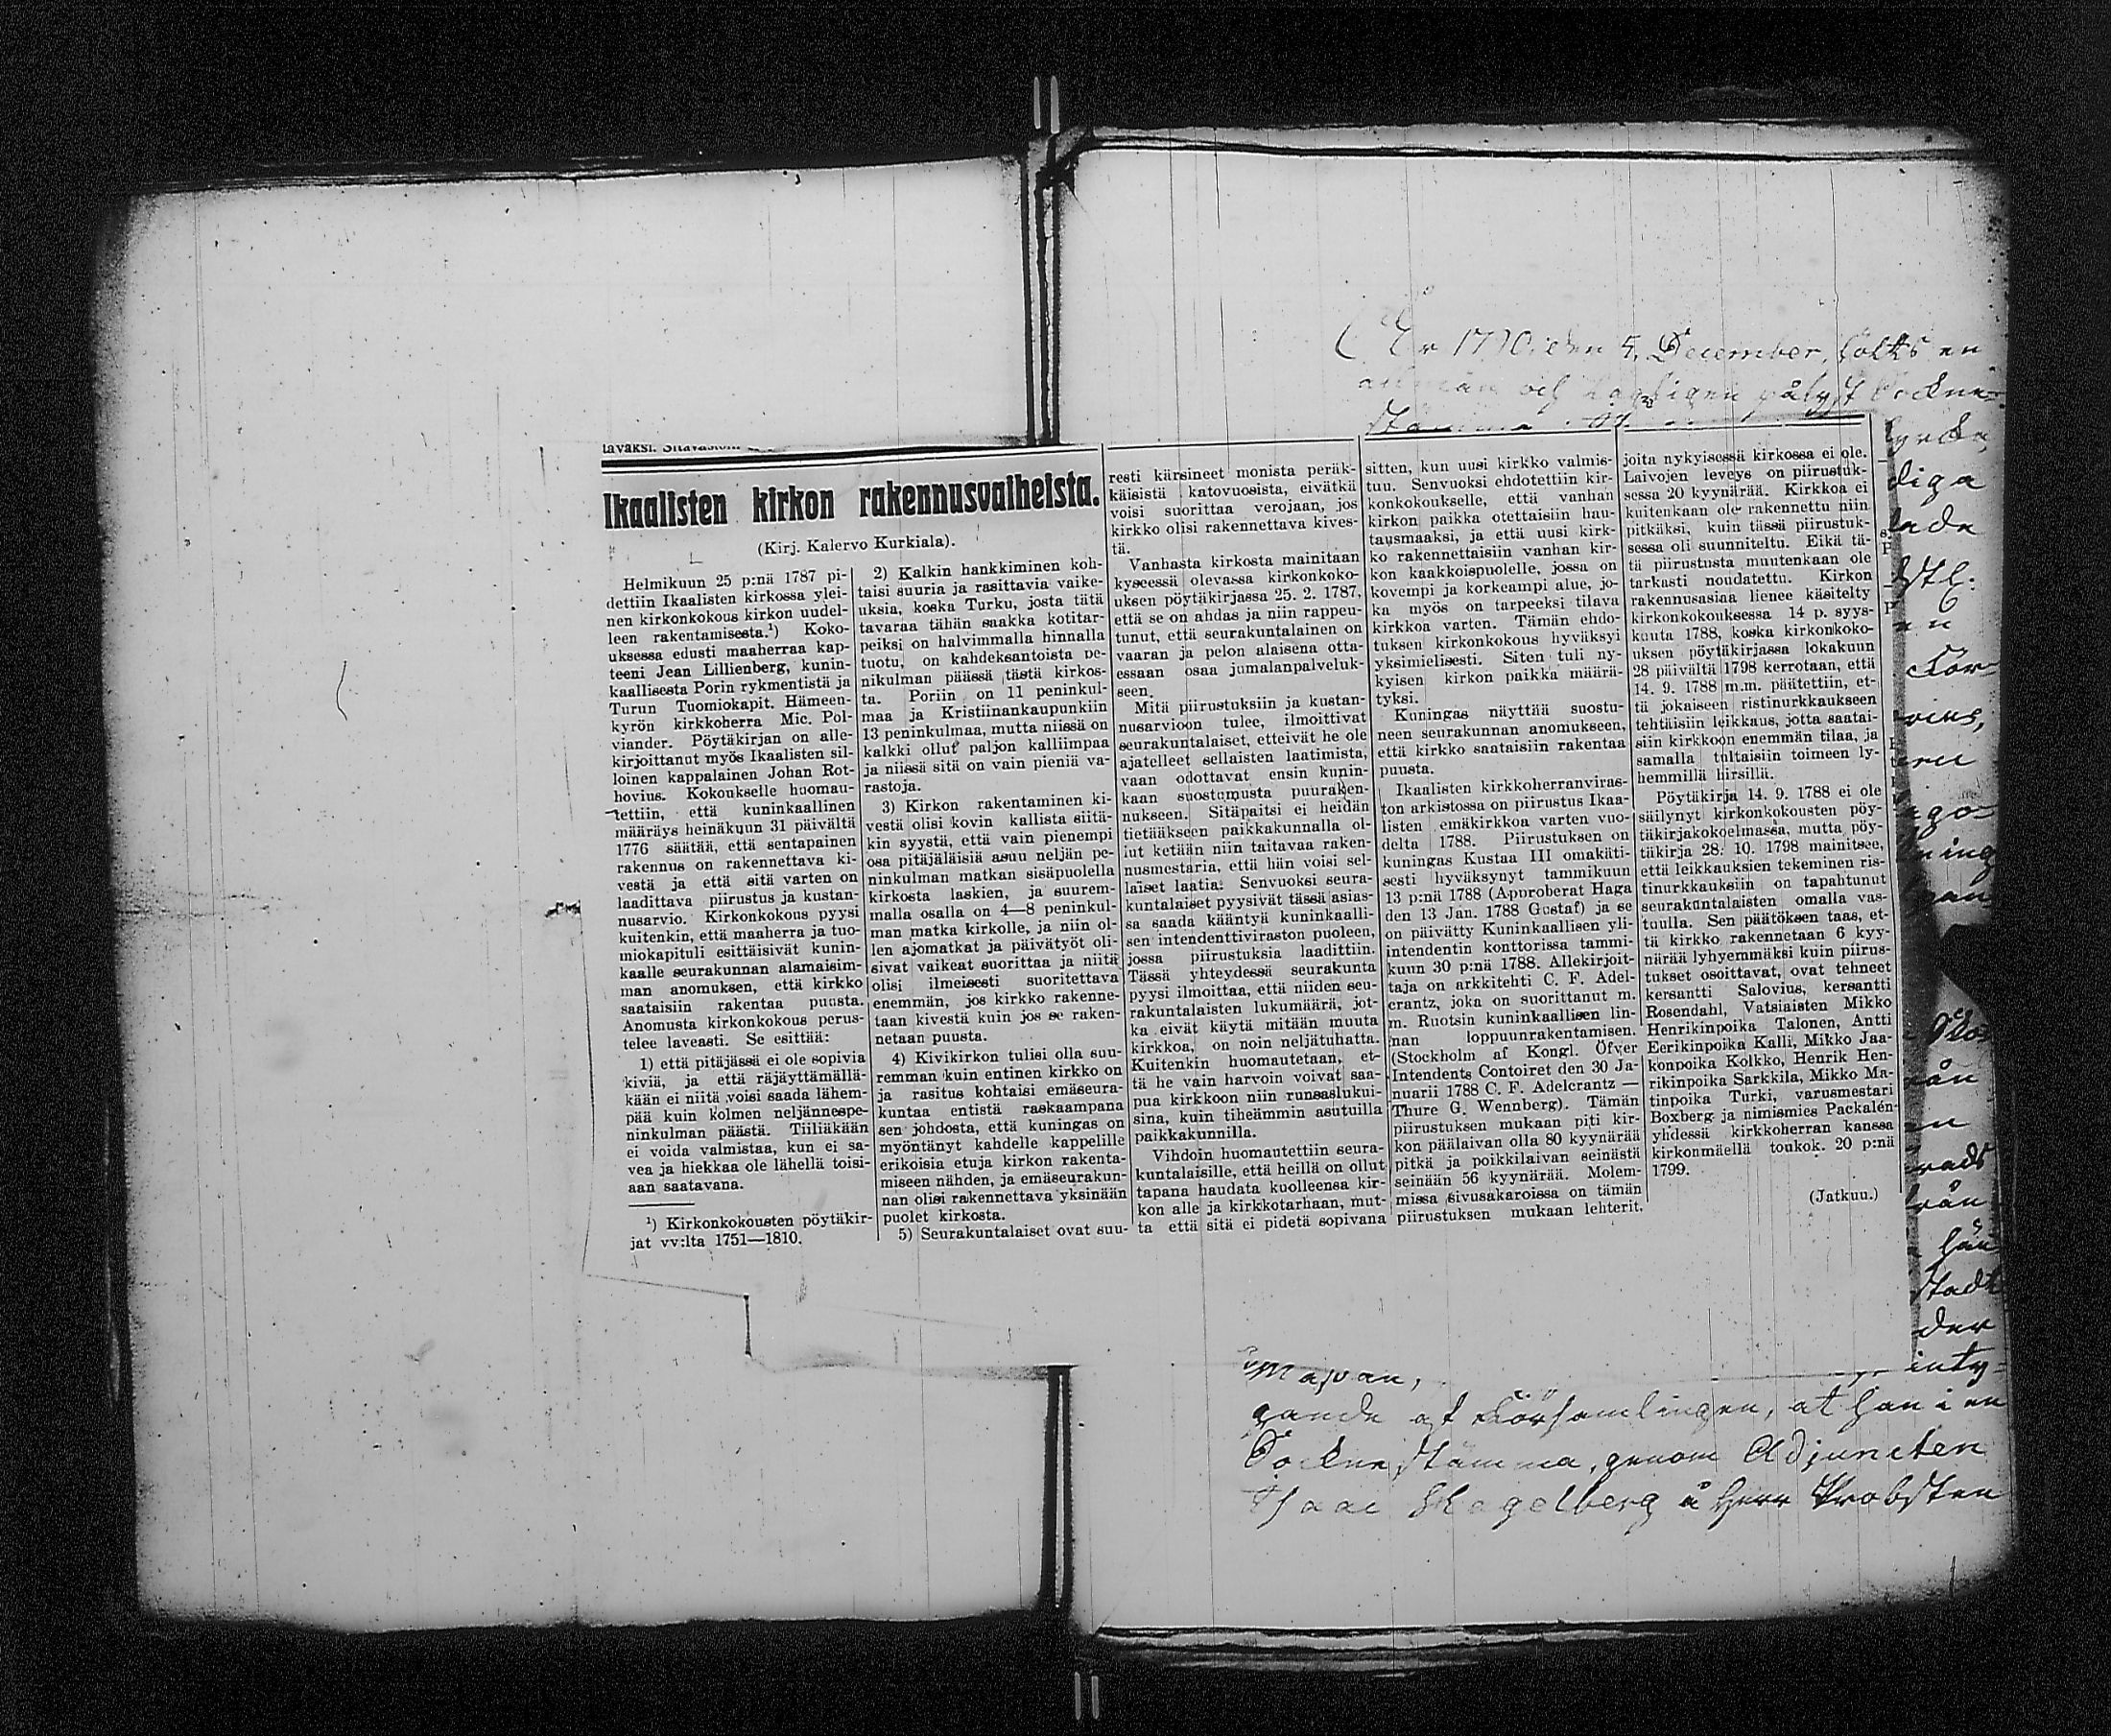 1770 den 5. December, hölts en
och pålyst Sockne-
tavaksi.
Ikaalisten kirkon rakennusvaiheista.
(Kirj. Kalervo Kurkiala).
Helmikuun 25 p:nä 1787 pi-
dettiin Ikaalisten kirkossa ylei-
nen kirkonkokous kirkon uudel-
leen rakentamisesta.¹) Koko-
uksessa edusti maaherraa kap-
teeni Jean Lillienberg, kunin-
kaallisesta Porin rykmentistä ja
Turun Tuomiokapit. Hämeen-
kyrön kirkkoherra Mic. Pol-
viander. Pöytäkirjan on alle-
kirjoittanut myös Ikaalisten sil-
loinen kappalainen Johan Rot-
hovius. Kokoukselle huomau-
tettiin, että kuninkaallinen
määräys heinäkuun 31 päivältä
1776 säätää, että sentapainen
rakennus on rakennettava ki-
vestä ja että sitä varten on
laadittava piirustus ja kustan-
nusarvio. Kirkonkokous pyysi
kuitenkin, että maaherra ja tuo-
miokapituli esittäisivät kunin-
kaalle seurakunnan alamaisim-
man anomuksen, että kirkko
saataisiin rakentaa puusta.
Anomusta kirkonkokous perus-
telee laveasti. Se esittää:
1) että pitäjässä ei ole sopivia
kiviä, ja että räjäyttämällä-
kään ei niitä voisi saada lähem-
pää kuin kolmen neljännespe-
ninkulman päästä. Tiiliäkään
ei voida valmistaa, kun ei sa-
vea ja hiekkaa ole lähellä toisi-
aan saatavana.
¹) Kirkonkokousten pöytäkir-
jat vv:lta 1751—1810.
2) Kalkin hankkiminen koh-
taisi suuria ja rasittavia vaike-
uksia, koska Turku, josta tätä
tavaraa tähän saakka kotitar-
peiksi on halvimmalla hinnalla
tuotu, on kahdeksantoista pe-
nikulman päässä tästä kirkos-
ta. Poriin on 11 peninkul-
maa ja Kristiinankaupunkiin
13 peninkulmaa, mutta niissä on
kalkki ollut paljon kalliimpaa
ja niissä sitä on vain pieniä va-
rastoja.
3) Kirkon rakentaminen ki-
vestä olisi kovin kallista siitä-
kin syystä, että vain pienempi
osa pitäjäläisiä asuu neljän pe-
ninkulman matkan sisäpuolella
kirkosta laskien, ja suurem-
malla osalla on 4—8 peninkul-
man matka kirkolle, ja niin ol-
len ajomatkat ja päivätyöt oli-
sivat vaikeat suorittaa ja niitä
olisi ilmeisesti suoritettava
enemmän, jos kirkko rakenne-
taan kivestä kuin jos se raken-
netaan puusta.
4) Kivikirkon tulisi olla suu-
remman kuin entinen kirkko on
ja rasitus kohtaisi emäseura-
kuntaa entistä raskaampana
sen johdosta, että kuningas on
myöntänyt kahdelle kappelille
erikoisia etuja kirkon rakenta-
miseen nähden, ja emäseurakun-
nan olisi rakennettava yksinään
puolet kirkosta.
5) Seurakuntalaiset ovat suu-
resti kärsineet monista peräk-
käisistä katovuosista, eivätkä
voisi suorittaa verojaan, jos
kirkko olisi rakennettava kives-
tä.
Vanhasta kirkosta mainitaan
kyseessä olevassa kirkonkoko-
uksen pöytäkirjassa 25. 2. 1787,
että se on ahdas ja niin rappeu-
tunut, että seurakuntalainen on
vaaran ja pelon alaisena otta-
essaan osaa jumalanpalveluk-
seen.
Mitä piirustuksiin ja kustan-
nusarvioon tulee, ilmoittivat
seurakuntalaiset, etteivät he ole
ajatelleet sellaisten laatimista,
vaan odottavat ensin kunin-
kaan suostumusta puuraken-
nukseen. Sitäpaitsi ei heidän
tietääkseen paikkakunnalla ol-
lut ketään niin taitavaa raken-
nusmestaria, että hän voisi sel-
laiset laatia. Senvuoksi seura-
kuntalaiset pyysivät tässä asias-
sa saada kääntyä kuninkaalli-
sen intendenttiviraston puoleen,
jossa piirustuksia laadittiin.
Tässä yhteydessä seurakunta
pyysi ilmoittaa, että niiden seu-
rakuntalaisten lukumäärä, jot-
ka eivät käytä mitään muuta
kirkkoa, on noin neljätuhatta.
Kuitenkin huomautetaan, et-
tä he vain harvoin voivat saa-
pua kirkkoon niin runsaslukui-
sina, kuin tiheämmin asutuilla
paikkakunnilla.
Vihdoin huomautettiin seura-
kuntalaisille, että heillä on ollut
tapana haudata kuolleensa kir-
kon alle ja kirkkotarhaan, mut-
ta että sitä ei pidetä sopivana
sitten, kun uusi kirkko valmis-
tuu. Senvuoksi ehdotettiin kir-
konkokoukselle, että vanhan
kirkon paikka otettaisiin hau-
tausmaaksi, ja että uusi kirk-
ko rakennettaisiin vanhan kir-
kon kaakkoispuolelle, jossa on
kovempi ja korkeampi alue, jo-
ka myös on tarpeeksi tilava
kirkkoa varten. Tämän ehdo-
tuksen kirkonkokous hyväksyi
yksimielisesti. Siten tuli ny-
kyisen kirkon paikka määrä-
tyksi.
Kuningas näyttää suostu-
neen seurakunnan anomukseen,
että kirkko saataisiin rakentaa
puusta.
Ikaalisten kirkkoherranviras-
ton arkistossa on piirustus Ikaa-
listen emäkirkkoa varten vuo-
delta 1788. Piirustuksen on
kuningas Kustaa III omakäti-
sesti hyväksynyt tammikuun
13 p:nä 1788 (Approberat Haga
den 13 Jan. 1788 Gustaf) ja se
on päivätty Kuninkaallisen yli-
intendentin konttorissa tammi-
kuun 30 p:nä 1788. Allekirjoit-
taja on arkkitehti C. F. Adel-
crantz, joka on suorittanut m.
m. Ruotsin kuninkaallisen lin-
nan loppuunrakentamisen.
(Stockholm af Kongl. Öfver
Intendents Contoiret den 30 Ja-
nuarii 1788 C. F. Adelcrantz —
Thure G. Wennberg). Tämän
piirustuksen mukaan piti kir-
kon päälaivan olla 80 kyynärää
pitkä ja poikkilaivan seinästä
seinään 56 kyynärää. Molem-
missa sivusakaroissa on tämän
piirustuksen mukaan lehterit,
joita nykyisessä kirkossa ei ole.
Laivojen leveys on piirustuk-
sessa 20 kyynärää. Kirkkoa ei
kuitenkaan ole rakennettu niin
pitkäksi, kuin tässä piirustuk-
sessa oli suunniteltu. Eikä tä-
tä piirustusta muutenkaan ole
tarkasti noudatettu. Kirkon
rakennusasiaa lienee käsitelty
kirkonkokouksessa 14 p. syys-
kuuta 1788, koska kirkonkoko-
uksen pöytäkirjassa lokakuun
28 päivältä 1798 kerrotaan, että
14. 9. 1788 m.m. päätettiin, et-
tä jokaiseen ristinurkkaukseen
tehtäisiin leikkaus, jotta saatai-
siin kirkkoon enemmän tilaa, ja
samalla tultaisiin toimeen ly-
hemmillä hirsillä.
Pöytäkirja 14. 9. 1788 ei ole
säilynyt kirkonkokousten pöy-
täkirjakokoelmassa, mutta pöy-
täkirja 28. 10. 1798 mainitsee,
että leikkauksien tekeminen ris-
tinurkkauksiin on tapahtunut
seurakuntalaisten omalla vas-
tuulla. Sen päätöksen taas, et-
tä kirkko rakennetaan 6 kyy-
närää lyhyemmäksi kuin piirus-
tukset osoittavat, ovat tehneet
kersantti Salovius, kersantti
Rosendahl, Vatsiaisten Mikko
Henrikinpoika Talonen, Antti
Eerikinpoika Kalli, Mikko Jaa-
konpoika Kolkko, Henrik Hen-
rikinpoika Sarkkila, Mikko Ma-
tinpoika Turki, varusmestari
Boxberg ja nimismies Packalén
yhdessä kirkkoherran kanssa
kirkonmäellä toukok. 20 p:nä
1799.
(Jatkuu.)
gande af Församlingen, at han i en
Sockne stämma, genom Adjuncten
Isaac Hagelberg å Herr Probsten